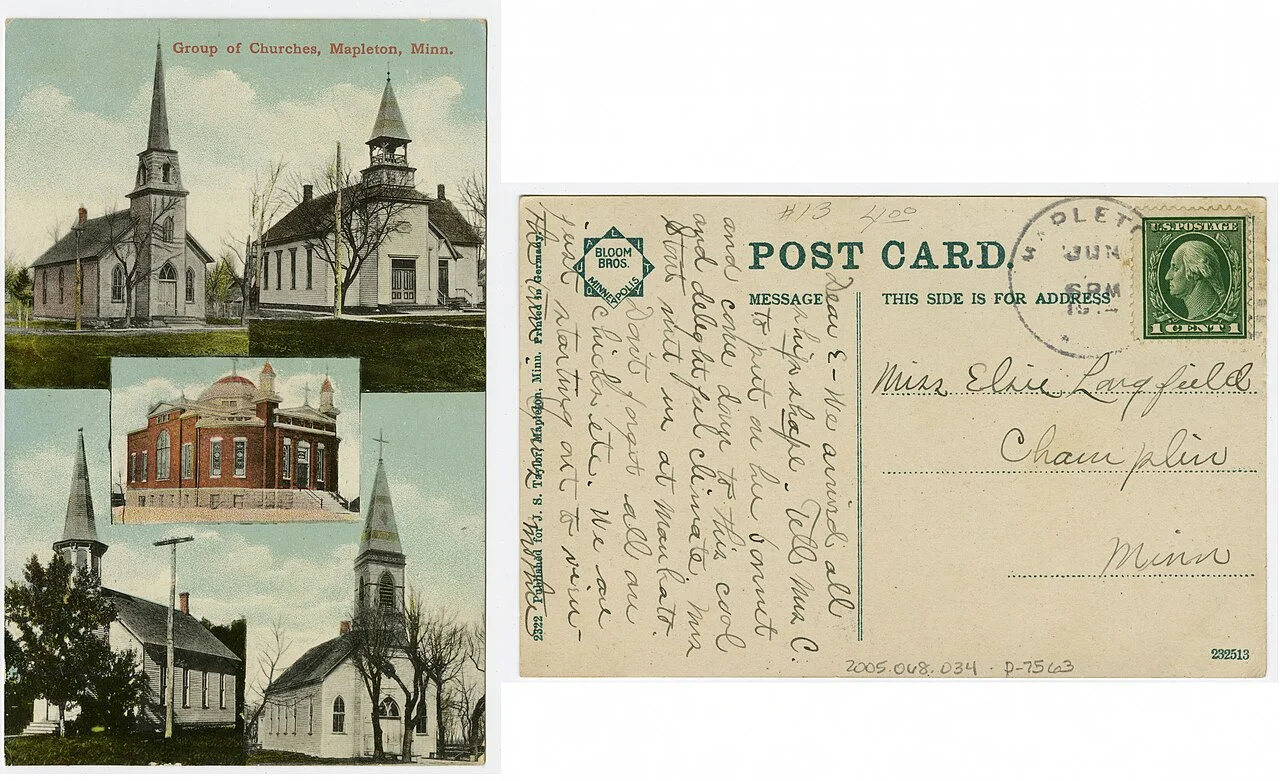 Group of Churches, Mapleton, Minn.
#13 4.00
QUALITY
BLOOM
BROS.
MINNEAPOLIS
POST CARD.
MESSAGE
THIS SIDE IS FOR ADDRESS
JUN
6 PM
U.S. POSTAGE
1 CENT 1
Miss Elsie Langfield
Champlin
Minn
Dear E - We arrived all
ship shape. Tell Mrs C.
to put on her bonnet
and come down to this cool
and delightful climate. Mrs
Stout met us at Mankato.
Don't forget all on
chickens etc. We are
just starting out to view
the town.
2322 Published for J. S. Taylor, Mapleton, Minn. Printed in Germany
232513
2005.068.034 . P-7563